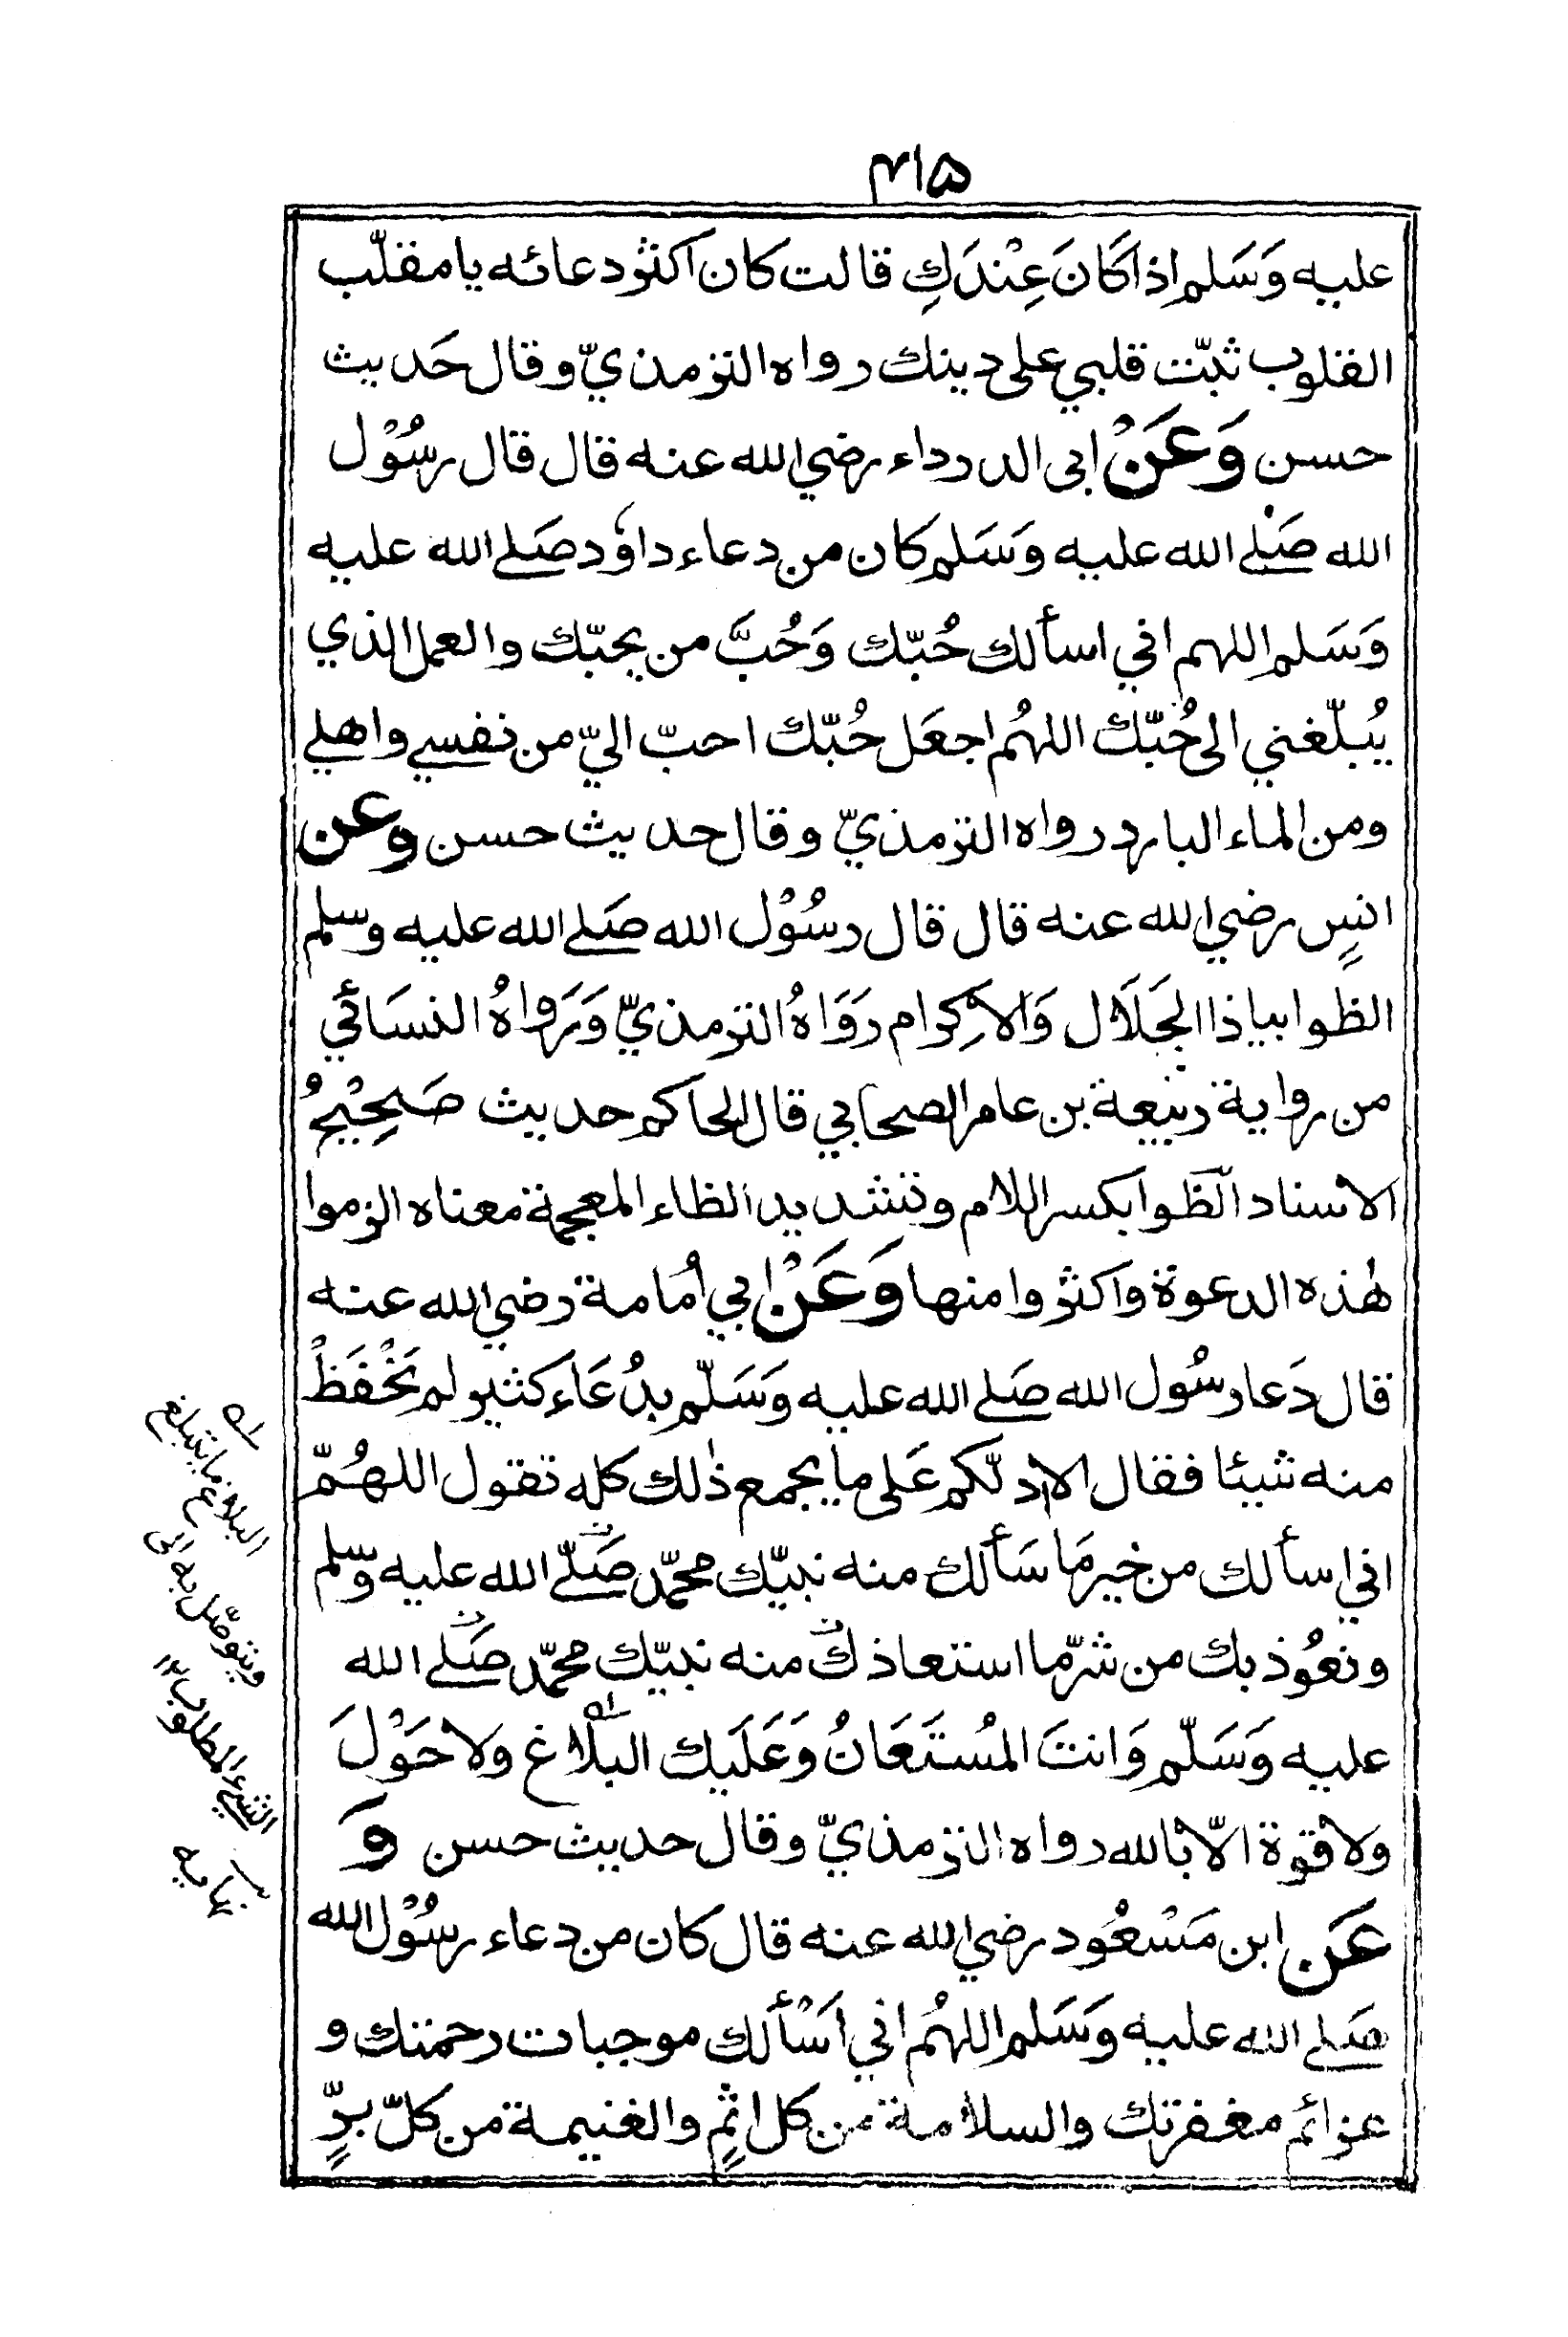 ۴۱۵
عليه وَسَلم اذا كَانَ عِنْدَكِ قالت كان اكثر دعائه يا مقلّب
القلوب ثبّت قلبي على دينك رواه الترمذيّ وقال حَديث
حسن وَعَنْ ابى الدرداء رضي الله عنه قال قال رسُوْل
الله صَلے الله عليه وَسَلم كان من دعاء داوٗد صَلے الله عليه
وَسَلم اللهم اني اسألك حُبّك وَحُبَّ من يحبّك والعمل الذي
يُبلّغني الى حُبّك اللهُم اجعَل حُبّك احبّ اليّ من نفسي واهلي
ومن الماء البارد رواه الترمذيّ وقال حديث حسن وعن
انسٍ رضي الله عنه قال قال رسُوْل الله صَلے الله عليه وسلم
الظوا بياذا الجَلَال وَالاِكرام رَوَاهُ الترمذيّ وَرَواهُ النسَائي
من رواية ربيعة بن عامر الصحابي قال الحاكم حديث صَحِيْحُ
الاسناد الّظوا بكسر اللام وتشديد الظاء المعجمة معناه الزموا
هٰذه الدعوة وَاكثروا منها وَعَنْ ابي اُمامة رضي الله عنه
قال دَعا رسُول الله صَلے الله عليه وَسَلّم بدُعَاء كثير لم نَحْفَظْ
منه شيئا فقال الا ادلّكم عَلى ما يجمع ذٰلك كله تقول اللهُمّ
اني اسألك من خير مَا سَألك منه نبيّك محمّد صَلّے الله عليه وسّلم
ونعُوذ بك من شرّ ما استعاذك منه نبيّك محمّد صَلے الله
عليه وَسَلّم وَانتَ المُستَعَانُ وَعَلَيك البلاغ ولا حَوْلَ
ولا قوة الّا بالله رواه الترمذيّ وقال حديث حسن وَ
عَن ابن مَسْعُود رضي الله عنه قال كان من دعاء رسُوْل الله
صَلے الله عليه وَسَلم اللهُم اني اَسْألك موجبات رحمتك و
عزائم مغفرتك والسلامة من كل اثمٍ والغنيمة من كلّ برٍّ
البلاغ ما يتبلغ
ويتوصّل به الى
الشيء المطلوب
نهايه